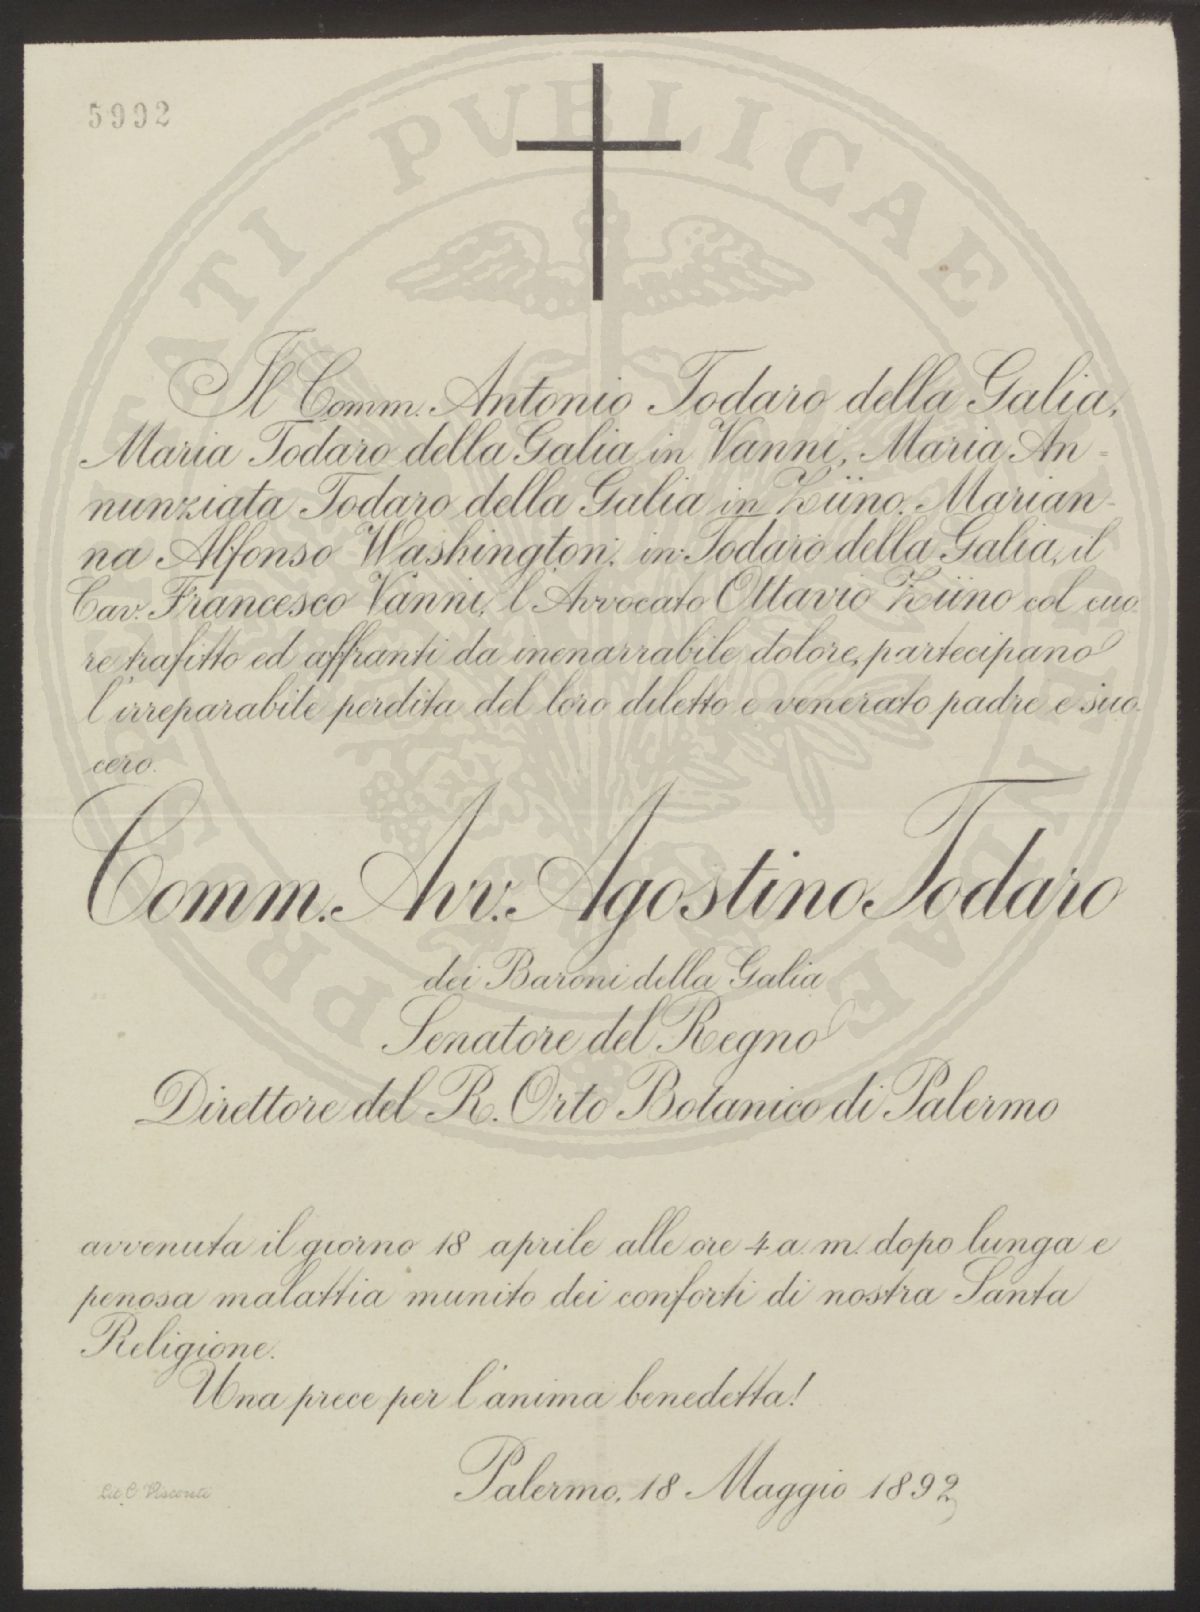 5992
Il Comm. Antonio Todaro della Galia,
Maria Todaro della Galia in Vanni, Maria An-
nunziata Todaro della Galia in Züno, Marian-
na Alfonso Washington, in Todaro della Galia, il
Cav. Francesco Vanni, l'Avvocato Ottavio Züno col cuo-
re trafitto ed affranti da inenarrabile dolore, partecipano
l'irreparabile perdita del loro diletto e venerato padre e suo-
cero.
Comm. Avv. Agostino Todaro
dei Baroni della Galia
Senatore del Regno
Direttore del R. Orto Botanico di Palermo
avvenuta il giorno 18 aprile alle ore 4 a. m. dopo lunga e
penosa malattia munito dei conforti di nostra Santa
Religione.
Una prece per l'anima benedetta!
Palermo, 18 Maggio 1892
Lit. C. Visconti
PROSPERITATI PUBLICAE AUGENDAE